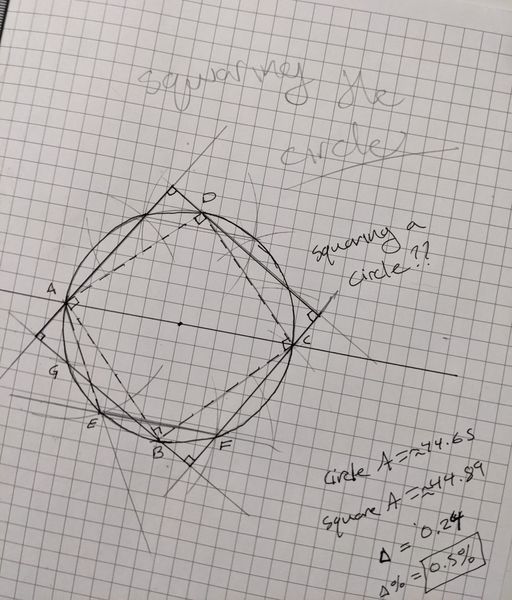 squaring the
circle
squaring a
circle??
D
A
C
G
E
B
F
circle A = ≈44.65
square A = ≈44.89
Δ = 0.24
Δ% = 0.5%